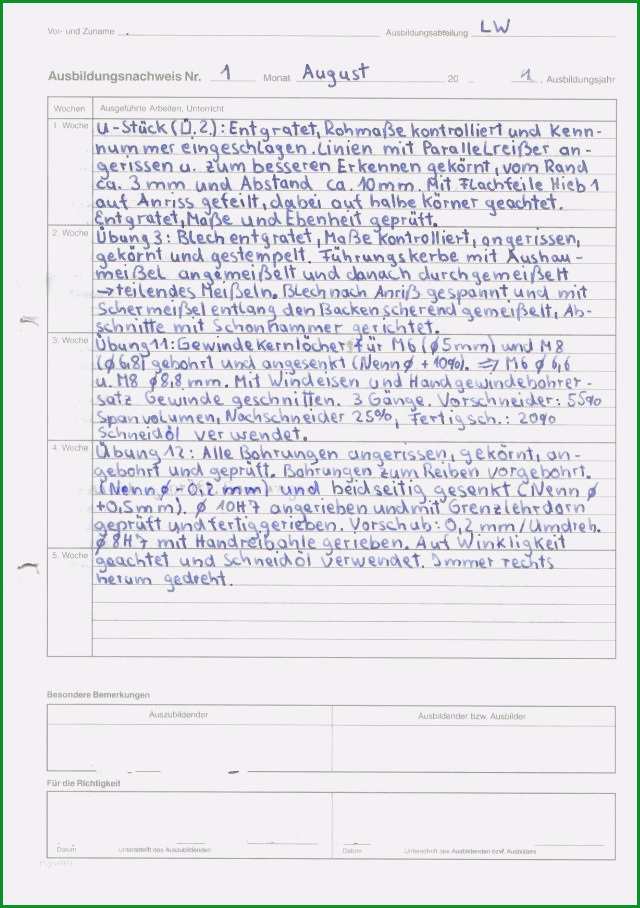 Vor- und Zuname
Ausbildungsabteilung LW
Ausbildungsnachweis Nr. 1 Monat August 20 1. Ausbildungsjahr
Wochen Ausgeführte Arbeiten, Unterricht
1. Woche U-Stück (Ü.2.): Entgratet, Rohmaße kontrolliert und Kenn-
nummer eingeschlagen. Linien mit Parallelreißer an-
gerissen u. zum besseren Erkennen gekörnt, vom Rand
ca. 3mm und Abstand ca. 10mm. Mit Flachfeile Hieb 1
auf Anriss gefeilt, dabei auf halbe Körner geachtet.
Entgratet, Maße und Ebenheit geprüft.
2. Woche Übung 3: Blech entgratet, Maße kontrolliert, angerissen,
gekörnt und gestempelt. Führungskerbe mit Aushau-
meißel angemeißelt und danach durchgemeißelt
→ teilendes Meißeln. Blech nach Anriß gespannt und mit
Schermeißel entlang den Backen scherend gemeißelt, Ab-
schnitte mit Schonhammer gerichtet.
3. Woche Übung 11: Gewindekernlöcher für M6 (ø5mm) und M8
(ø6,8) gebohrt und angesenkt (Nennø + 10%). => M6 ø 6,6
u. M8 ø8,8 mm. Mit Windeisen und Handgewindebohrer-
satz Gewinde geschnitten. 3 Gänge. Vorschneider: 55%
Spanvolumen, Nachschneider 25%, Fertigsch.: 20%
Schneidöl verwendet.
4. Woche Übung 12: Alle Bohrungen angerissen, gekörnt, an-
gebohrt und geprüft. Bohrungen zum Reiben vorgebohrt.
(Nennø - 0,2 mm) und beidseitig gesenkt (Nenn ø
+0,5mm). ø 10H7 angerieben und mit Grenzlehrdorn
geprüft und fertiggerieben. Vorschub: 0,2 mm/Umdreh.
ø 8H7 mit Handreibahle gerieben. Auf Winkligkeit
5. Woche geachtet und Schneidöl verwendet. Immer rechts
herum gedreht.
Besondere Bemerkungen
Auszubildender Ausbildender bzw. Ausbilder
Für die Richtigkeit
Datum Unterschrift des Auszubildenden Datum Unterschrift des Ausbildenden bzw. Ausbilders